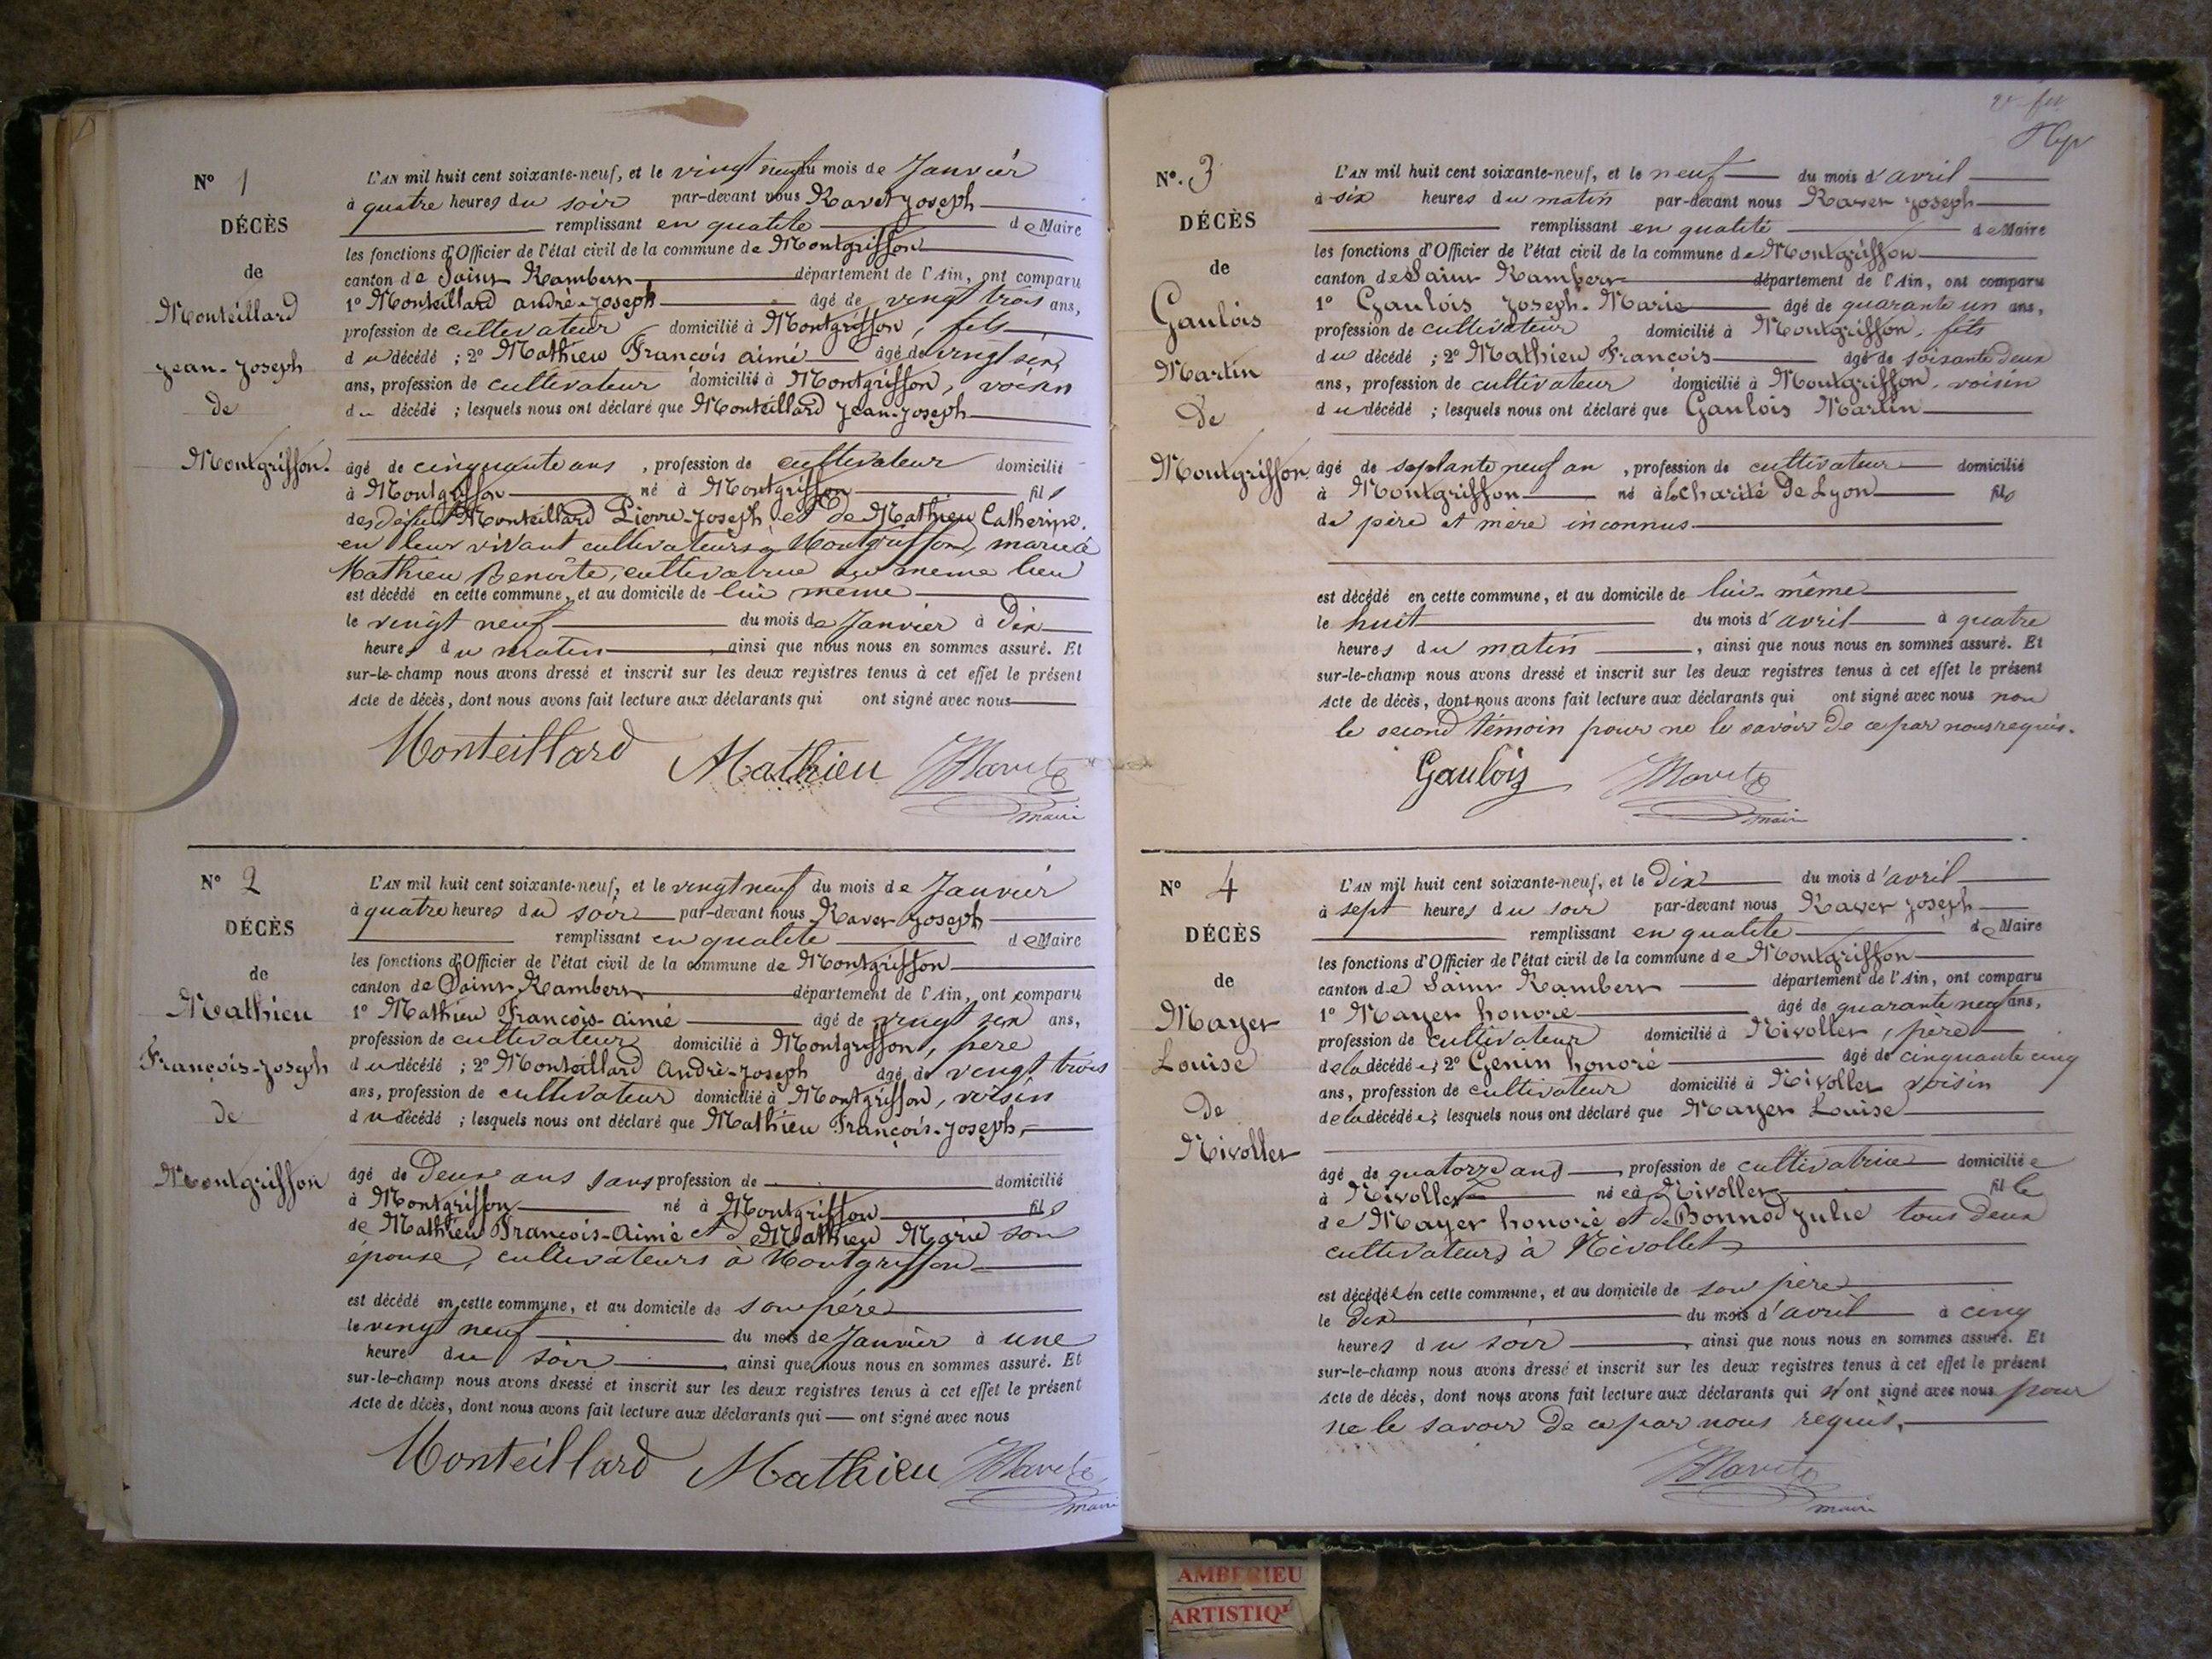 N° 1
DÉCÈS
de
Monteillard
Jean-Joseph
de
Montgriffon.
L'AN mil huit cent soixante-neuf, et le vingt neuf du mois de Janvier
à quatre heures du soir par-devant nous Ravet Joseph
remplissant en qualité de Maire
les fonctions d'Officier de l'état civil de la commune de Montgriffon
canton de Saint Rambert département de l'Ain, ont comparu
1° Monteillard andré-Joseph âgé de vingt trois ans,
profession de cultivateur domicilié à Montgriffon, fils
du décédé ; 2° Mathieu François aimé âgé de vingt six
ans, profession de cultivateur domicilié à Montgriffon, voisin
du décédé ; lesquels nous ont déclaré que Monteillard Jean-Joseph
âgé de cinquante ans, profession de cultivateur domicilié
à Montgriffon né à Montgriffon fils
des défunt Monteillard Pierre-Joseph et de Mathieu Catherine.
en leur vivant cultivateurs à Montgriffon, marié à
Mathieu Benoîte, cultivatrice au même lieu
est décédé en cette commune, et au domicile de lui même
le vingt neuf du mois de Janvier à Dix
heures du matin, ainsi que nous nous en sommes assuré. Et
sur-le-champ nous avons dressé et inscrit sur les deux registres tenus à cet effet le présent
Acte de décès, dont nous avons fait lecture aux déclarants qui ont signé avec nous
Monteillard Mathieu Ravet
maire
N° 2
DÉCÈS
de
Mathieu
François-Joseph
de
Montgriffon
L'AN mil huit cent soixante-neuf, et le vingt neuf du mois de Janvier
à quatre heures du soir par-devant nous Ravet Joseph
remplissant en qualité de Maire
les fonctions d'Officier de l'état civil de la commune de Montgriffon
canton de Saint Rambert département de l'Ain, ont comparu
1° Mathieu François-aimé âgé de vingt six ans,
profession de cultivateur domicilié à Montgriffon, père
du décédé ; 2° Monteillard André-Joseph âgé de vingt trois
ans, profession de cultivateur domicilié à Montgriffon, voisin
du décédé ; lesquels nous ont déclaré que Mathieu François-Joseph,
âgé de Deux ans sans profession de domicilié
à Montgriffon né à Montgriffon fils
de Mathieu François-Aimé et de Mathieu Marie son
épouse, cultivateurs à Montgriffon
est décédé en cette commune, et au domicile de son père
le vingt neuf du mois de Janvier à une
heure du soir, ainsi que nous nous en sommes assuré. Et
sur-le-champ nous avons dressé et inscrit sur les deux registres tenus à cet effet le présent
Acte de décès, dont nous avons fait lecture aux déclarants qui — ont signé avec nous
Monteillard Mathieu Ravet
maire
N°. 3
DÉCÈS
de
Gaulois
Martin
De
Montgriffon.
L'AN mil huit cent soixante-neuf, et le neuf du mois d'avril
à six heures du matin par-devant nous Ravet Joseph
remplissant en qualité de Maire
les fonctions d'Officier de l'état civil de la commune de Montgriffon
canton de Saint Rambert département de l'Ain, ont comparu
1° Gaulois Joseph-Marie âgé de quarante un ans,
profession de cultivateur domicilié à Montgriffon, fils
du décédé ; 2° Mathieu François âgé de soixante deux
ans, profession de cultivateur domicilié à Montgriffon, voisin
du décédé ; lesquels nous ont déclaré que Gaulois Martin
âgé de septante neuf an, profession de cultivateur domicilié
à Montgriffon né à la charité de Lyon fils
de père et mère inconnus
est décédé en cette commune, et au domicile de lui-même
le huit du mois d'avril à quatre
heures du matin, ainsi que nous nous en sommes assuré. Et
sur-le-champ nous avons dressé et inscrit sur les deux registres tenus à cet effet le présent
Acte de décès, dont nous avons fait lecture aux déclarants qui ont signé avec nous non
le second témoin pour ne le savoir de ce par nous requis.
Gaulois Ravet
maire
N° 4
DÉCÈS
de
Mayer
Louise
De
Nivollet
L'AN mil huit cent soixante-neuf, et le Dix du mois d'avril
à sept heures du soir par-devant nous Ravet Joseph
remplissant en qualité de Maire
les fonctions d'Officier de l'état civil de la commune de Montgriffon
canton de Saint Rambert département de l'Ain, ont comparu
1° Mayer honoré âgé de quarante neuf ans,
profession de cultivateur domicilié à Nivollet, père
de la décédée ; 2° Genin honoré âgé de cinquante cinq
ans, profession de cultivateur domicilié à Nivollet voisin
de la décédée ; lesquels nous ont déclaré que Mayer Louise
âgé de quatorze ans, profession de cultivatrice domiciliée
à Nivollet née à Nivollet fille
de Mayer honoré et de Bonnod Julie tous deux
cultivateurs à Nivollet
est décédée en cette commune, et au domicile de son père
le Dix du mois d'avril à cinq
heures du soir, ainsi que nous nous en sommes assuré. Et
sur-le-champ nous avons dressé et inscrit sur les deux registres tenus à cet effet le présent
Acte de décès, dont nous avons fait lecture aux déclarants qui n'ont signé avec nous pour
ne le savoir de ce par nous requis.
Ravet
maire
AMBERIEU
ARTISTIQ